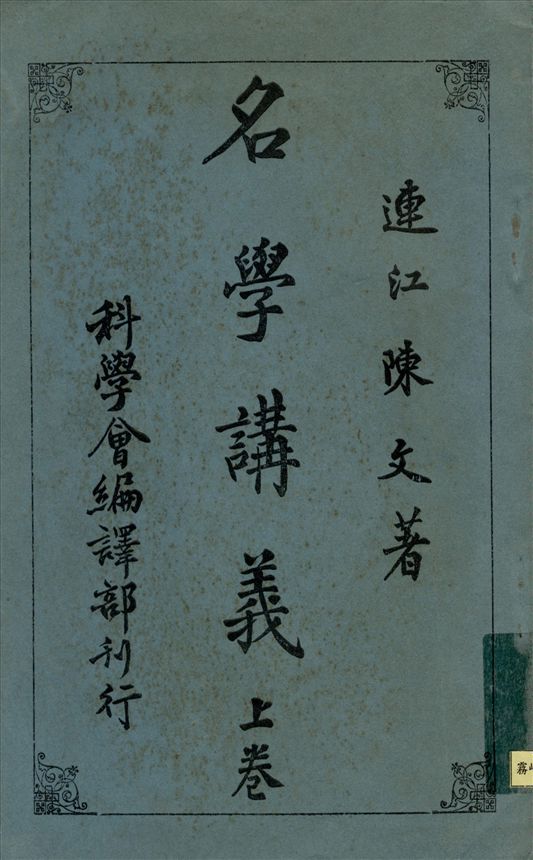 連江陳文著
名學講義上卷
科學會編譯部刊行
霧